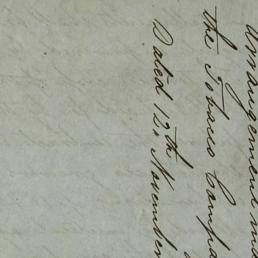 Arrangement ma
the Tobacco Compa
Dated 12th November